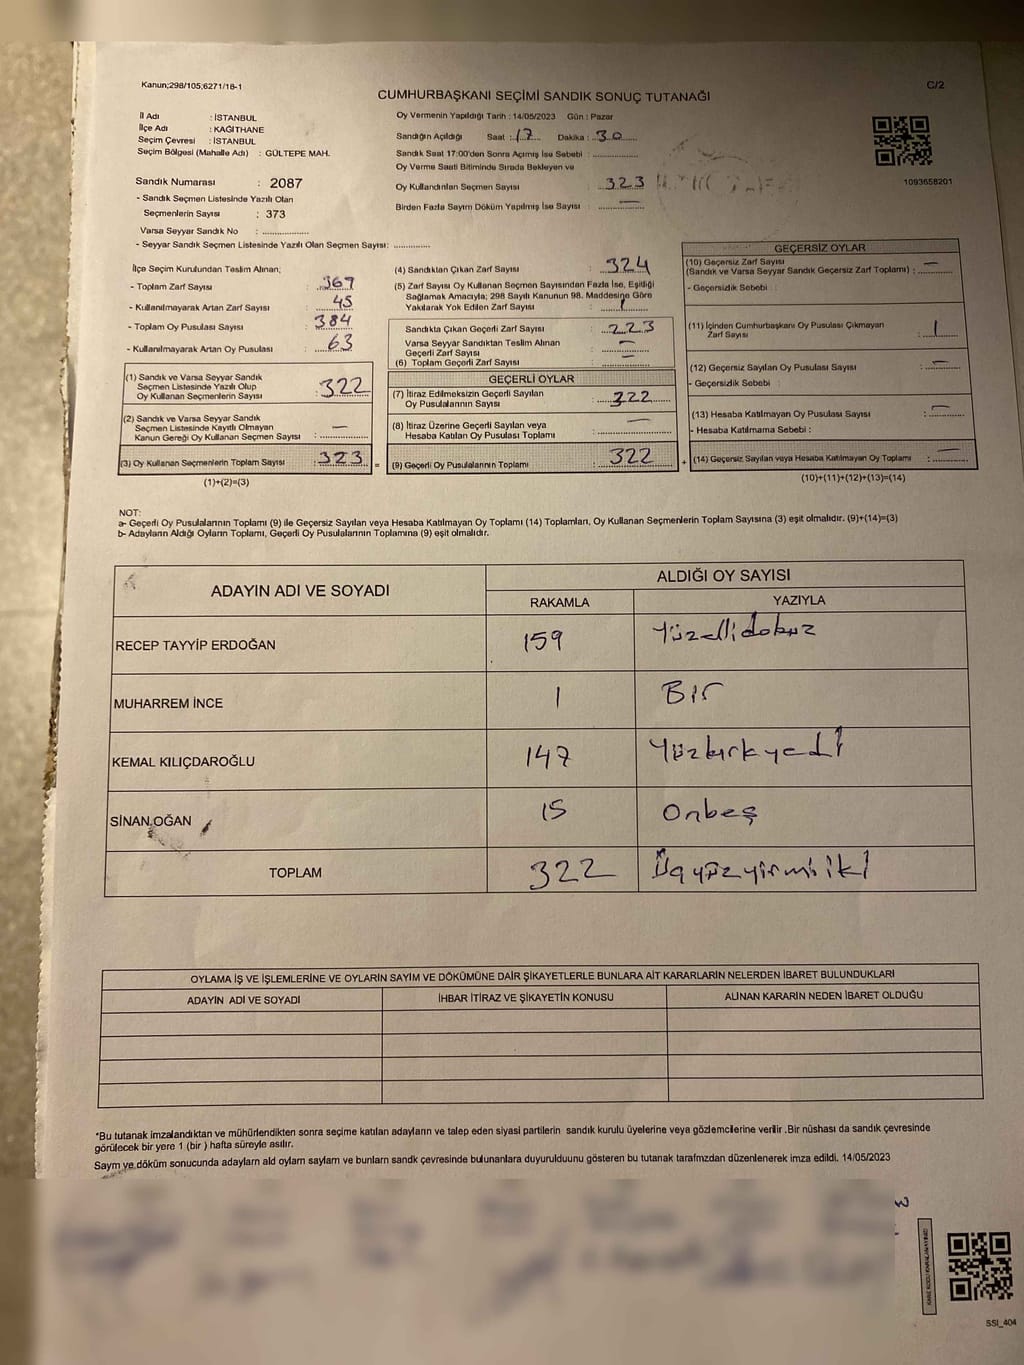 Kanun;298/105;6271/18-1
C/2
CUMHURBAŞKANI SEÇİMİ SANDIK SONUÇ TUTANAĞI
İl Adı : İSTANBUL
İlçe Adı : KAĞITHANE
Seçim Çevresi : İSTANBUL
Seçim Bölgesi (Mahalle Adı) : GÜLTEPE MAH.
Sandık Numarası : 2087
- Sandık Seçmen Listesinde Yazılı Olan
Seçmenlerin Sayısı : 373
Varsa Seyyar Sandık No : ..............
- Seyyar Sandık Seçmen Listesinde Yazılı Olan Seçmen Sayısı: ..............
Oy Vermenin Yapıldığı Tarih : 14/05/2023 Gün : Pazar
Sandığın Açıldığı Saat : 17 Dakika : 30
Sandık Saat 17:00'den Sonra Açılmış İse Sebebi : ..............
Oy Verme Saati Bitiminde Sırada Bekleyen ve
Oy Kullandırılan Seçmen Sayısı : 323
Birden Fazla Sayım Döküm Yapılmış İse Sayısı : —
1093658201
İlçe Seçim Kurulundan Teslim Alınan;
- Toplam Zarf Sayısı : 369
- Kullanılmayarak Artan Zarf Sayısı : 45
- Toplam Oy Pusulası Sayısı : 384
- Kullanılmayarak Artan Oy Pusulası : 63
(1) Sandık ve Varsa Seyyar Sandık
Seçmen Listesinde Yazılı Olup
Oy Kullanan Seçmenlerin Sayısı : 322
(2) Sandık ve Varsa Seyyar Sandık
Seçmen Listesinde Kayıtlı Olmayan
Kanun Gereği Oy Kullanan Seçmen Sayısı : —
(3) Oy Kullanan Seçmenlerin Toplam Sayısı : 323 =
(1)+(2)=(3)
(4) Sandıktan Çıkan Zarf Sayısı : 324
(5) Zarf Sayısı Oy Kullanan Seçmen Sayısından Fazla İse, Eşitliği
Sağlamak Amacıyla; 298 Sayılı Kanunun 98. Maddesine Göre
Yakılarak Yok Edilen Zarf Sayısı : 1
Sandıkta Çıkan Geçerli Zarf Sayısı : 223
Varsa Seyyar Sandıktan Teslim Alınan
Geçerli Zarf Sayısı : —
(6) Toplam Geçerli Zarf Sayısı : —
GEÇERLİ OYLAR
(7) İtiraz Edilmeksizin Geçerli Sayılan
Oy Pusulalarının Sayısı : 322
(8) İtiraz Üzerine Geçerli Sayılan veya
Hesaba Katılan Oy Pusulası Toplamı : —
(9) Geçerli Oy Pusulalarının Toplamı : 322 +
GEÇERSİZ OYLAR
(10) Geçersiz Zarf Sayısı
(Sandık ve Varsa Seyyar Sandık Geçersiz Zarf Toplamı) : —
- Geçersizlik Sebebi :
(11) İçinden Cumhurbaşkanı Oy Pusulası Çıkmayan
Zarf Sayısı : 1
(12) Geçersiz Sayılan Oy Pusulası Sayısı : —
- Geçersizlik Sebebi :
(13) Hesaba Katılmayan Oy Pusulası Sayısı : —
- Hesaba Katılmama Sebebi :
(14) Geçersiz Sayılan veya Hesaba Katılmayan Oy Toplamı : —
(10)+(11)+(12)+(13)=(14)
NOT:
a- Geçerli Oy Pusulalarının Toplamı (9) ile Geçersiz Sayılan veya Hesaba Katılmayan Oy Toplamı (14) Toplamları, Oy Kullanan Seçmenlerin Toplam Sayısına (3) eşit olmalıdır. (9)+(14)=(3)
b- Adayların Aldığı Oyların Toplamı, Geçerli Oy Pusulalarının Toplamına (9) eşit olmalıdır.
ADAYIN ADI VE SOYADI
ALDIĞI OY SAYISI
RAKAMLA YAZIYLA
RECEP TAYYİP ERDOĞAN 159 Yüzellidokuz
MUHARREM İNCE 1 Bir
KEMAL KILIÇDAROĞLU 147 Yüzkırkyedi
SİNAN OĞAN 15 Onbeş
TOPLAM 322 Üçyüzyirmiiki
OYLAMA İŞ VE İŞLEMLERİNE VE OYLARIN SAYIM VE DÖKÜMÜNE DAİR ŞİKAYETLERLE BUNLARA AİT KARARLARIN NELERDEN İBARET BULUNDUKLARI
ADAYIN ADI VE SOYADI İHBAR İTİRAZ VE ŞİKAYETİN KONUSU ALINAN KARARIN NEDEN İBARET OLDUĞU
*Bu tutanak imzalandıktan ve mühürlendikten sonra seçime katılan adayların ve talep eden siyasi partilerin sandık kurulu üyelerine veya gözlemcilerine verilir .Bir nüshası da sandık çevresinde
görülecek bir yere 1 (bir ) hafta süreyle asılır.
Saym ve döküm sonucunda adaylarn ald oylarn saylarn ve bunlarn sandk çevresinde bulunanlara duyurulduunu gösteren bu tutanak tarafmzdan düzenlenerek imza edildi. 14/05/2023
SSI_404